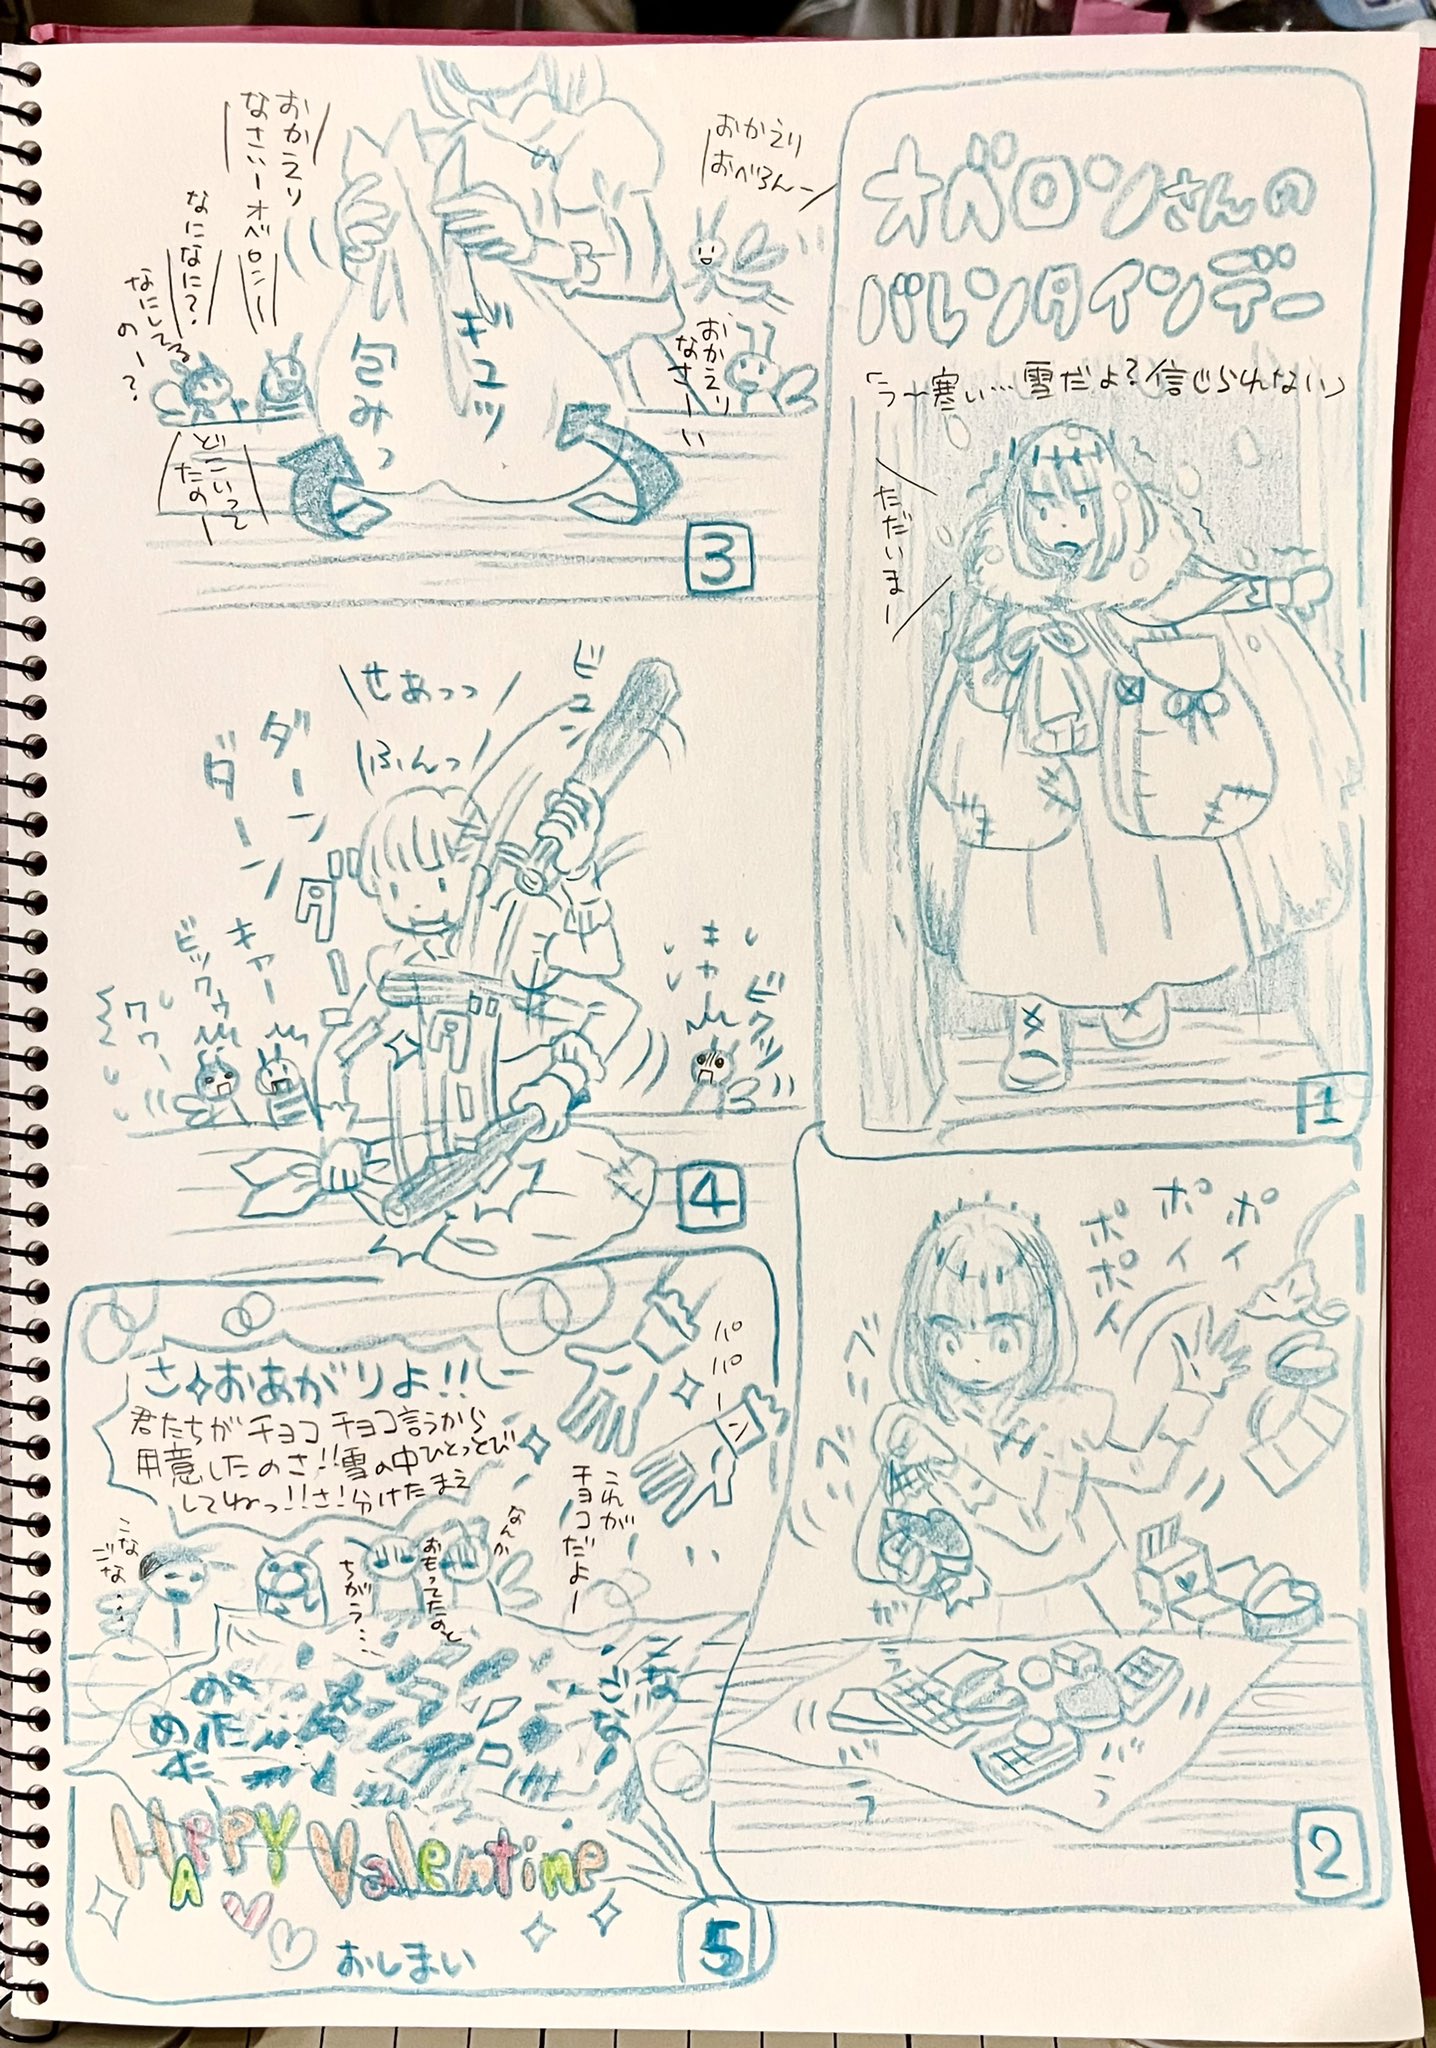 オベロンさんの
バレンタインデー
「う〜寒い…雪だよ?信じられない」
ただいまー
1
ポイ
ポイ
ポポイ
ベ
ベ
ガラ
バラ
バラ
2
おかえり
おべろんー
おかえり
なさーい
おかえり
なさいーオベロンー
なになに?
なにしてる
のー?
どこいって
たのー
ギュッ
包みっ
3
せあっっ
ふんっ
ビュ
ダーン
ダーン
ダ
ン
ダ
ン
キャー
ビックゥ
ワワー
キャー
ビクッ
4
さ おあがりよ!!
君たちがチョコチョコ言うから
用意したのさ!!雪の中ひとっとび
してねっ!!さ!分けたまえ
パパーン
これが
チョコだよー
なんか
おもってたのと
ちがう…
こな
ごな…
こな
ごな
HAPPY Valentine
おしまい
5